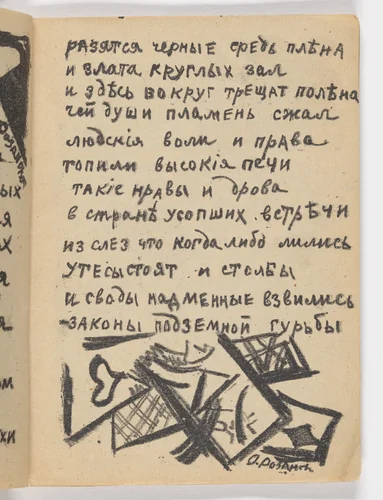 разятся черные средь плѣна
и злата круглых зал
и здѣсь вокруг трещат полѣна
чей души пламень сжал
людскія воли и права
топили высокія печи
такіе нравы и дрова
в странѣ усопших встрѣчи
из слез что когда либо лились
утесы стоят и столбы
и своды надменные взвились
законы подземной гурьбы
О. Розанова